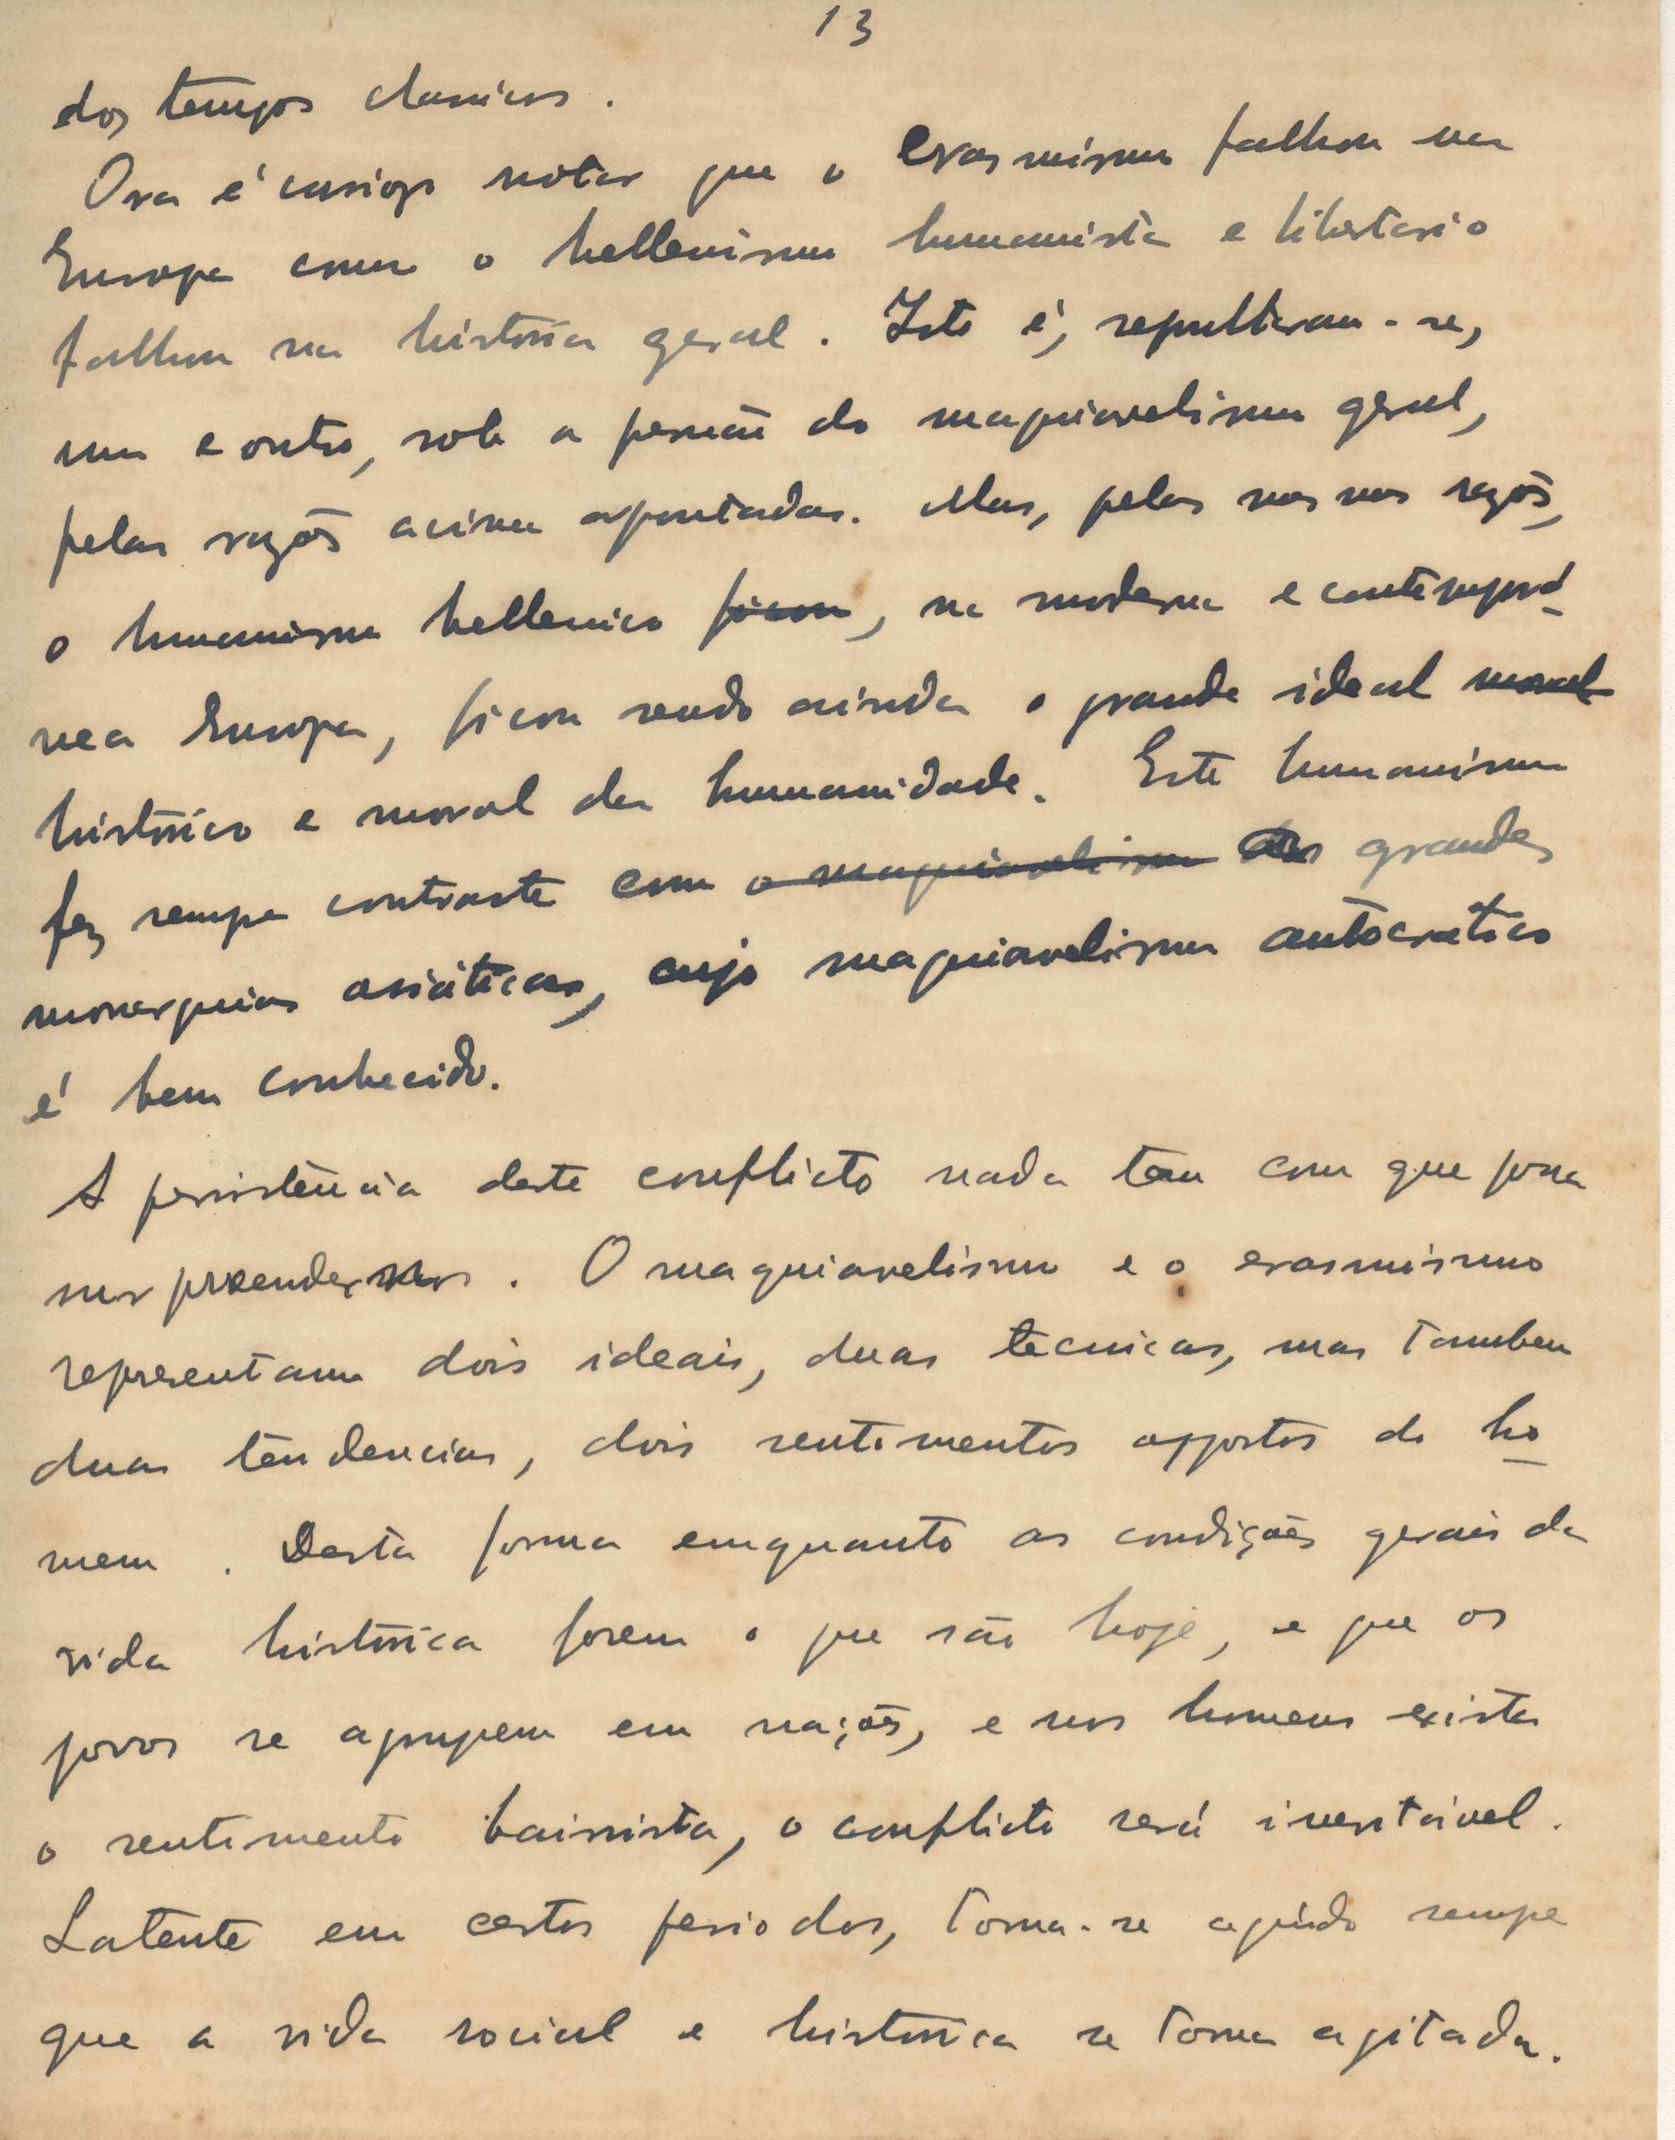 13
dos tempos classicos.
Ora é curioso notar que o erasmismo falhou na
Europa como o hellenismo humanista e libertario
falhou na história geral. Isto é, sepultaram-se,
um e outro, sob a pressão do maquiavelismo geral,
pelas razões acima apontadas. Mas, pelas mesmas razões,
o humanismo hellenico ficou, na moderna e contemporâ-
nea Europa, ficou sendo ainda o grande ideal moral
histórico e moral da humanidade. Este humanismo
fez sempre contraste com o maquiavelismo das grandes
monarquias asiáticas, cujo maquiavelismo autocratico
é bem conhecido.
A persistência deste conflicto nada tem com que possa
surpreender-nos. O maquiavelismo e o erasmismo
representam dois ideais, duas tecnicas, mas tambem
duas tendencias, dois sentimentos oppostos do ho-
mem. Desta forma emquanto as condições gerais da
vida histórica forem o que são hoje, e que os
povos se agrupem em nações, e nos homens exista
o sentimento bairrista, o conflicto será inevitável.
Latente em certos periodos, torna-se agudo sempre
que a vida social e histórica se torna agitada.